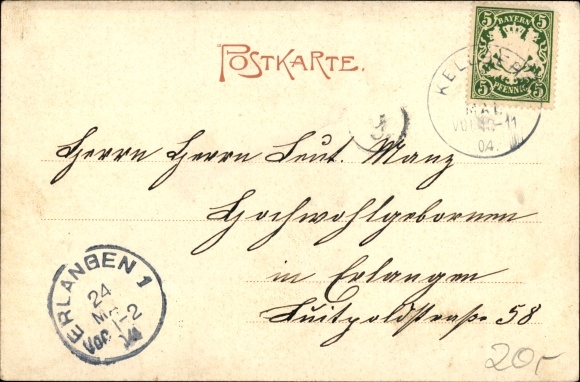 POSTKARTE.
5 BAYERN 5
5 PFENNIG 5
MAI
VOR 10-11
04.
Herrn Herrn Leut. Manz
Hochwohlgeboren
in Erlangen
Luitpoldstraße 58
ERLANGEN 1
24
MAI
Vor 1-2
04
20,-